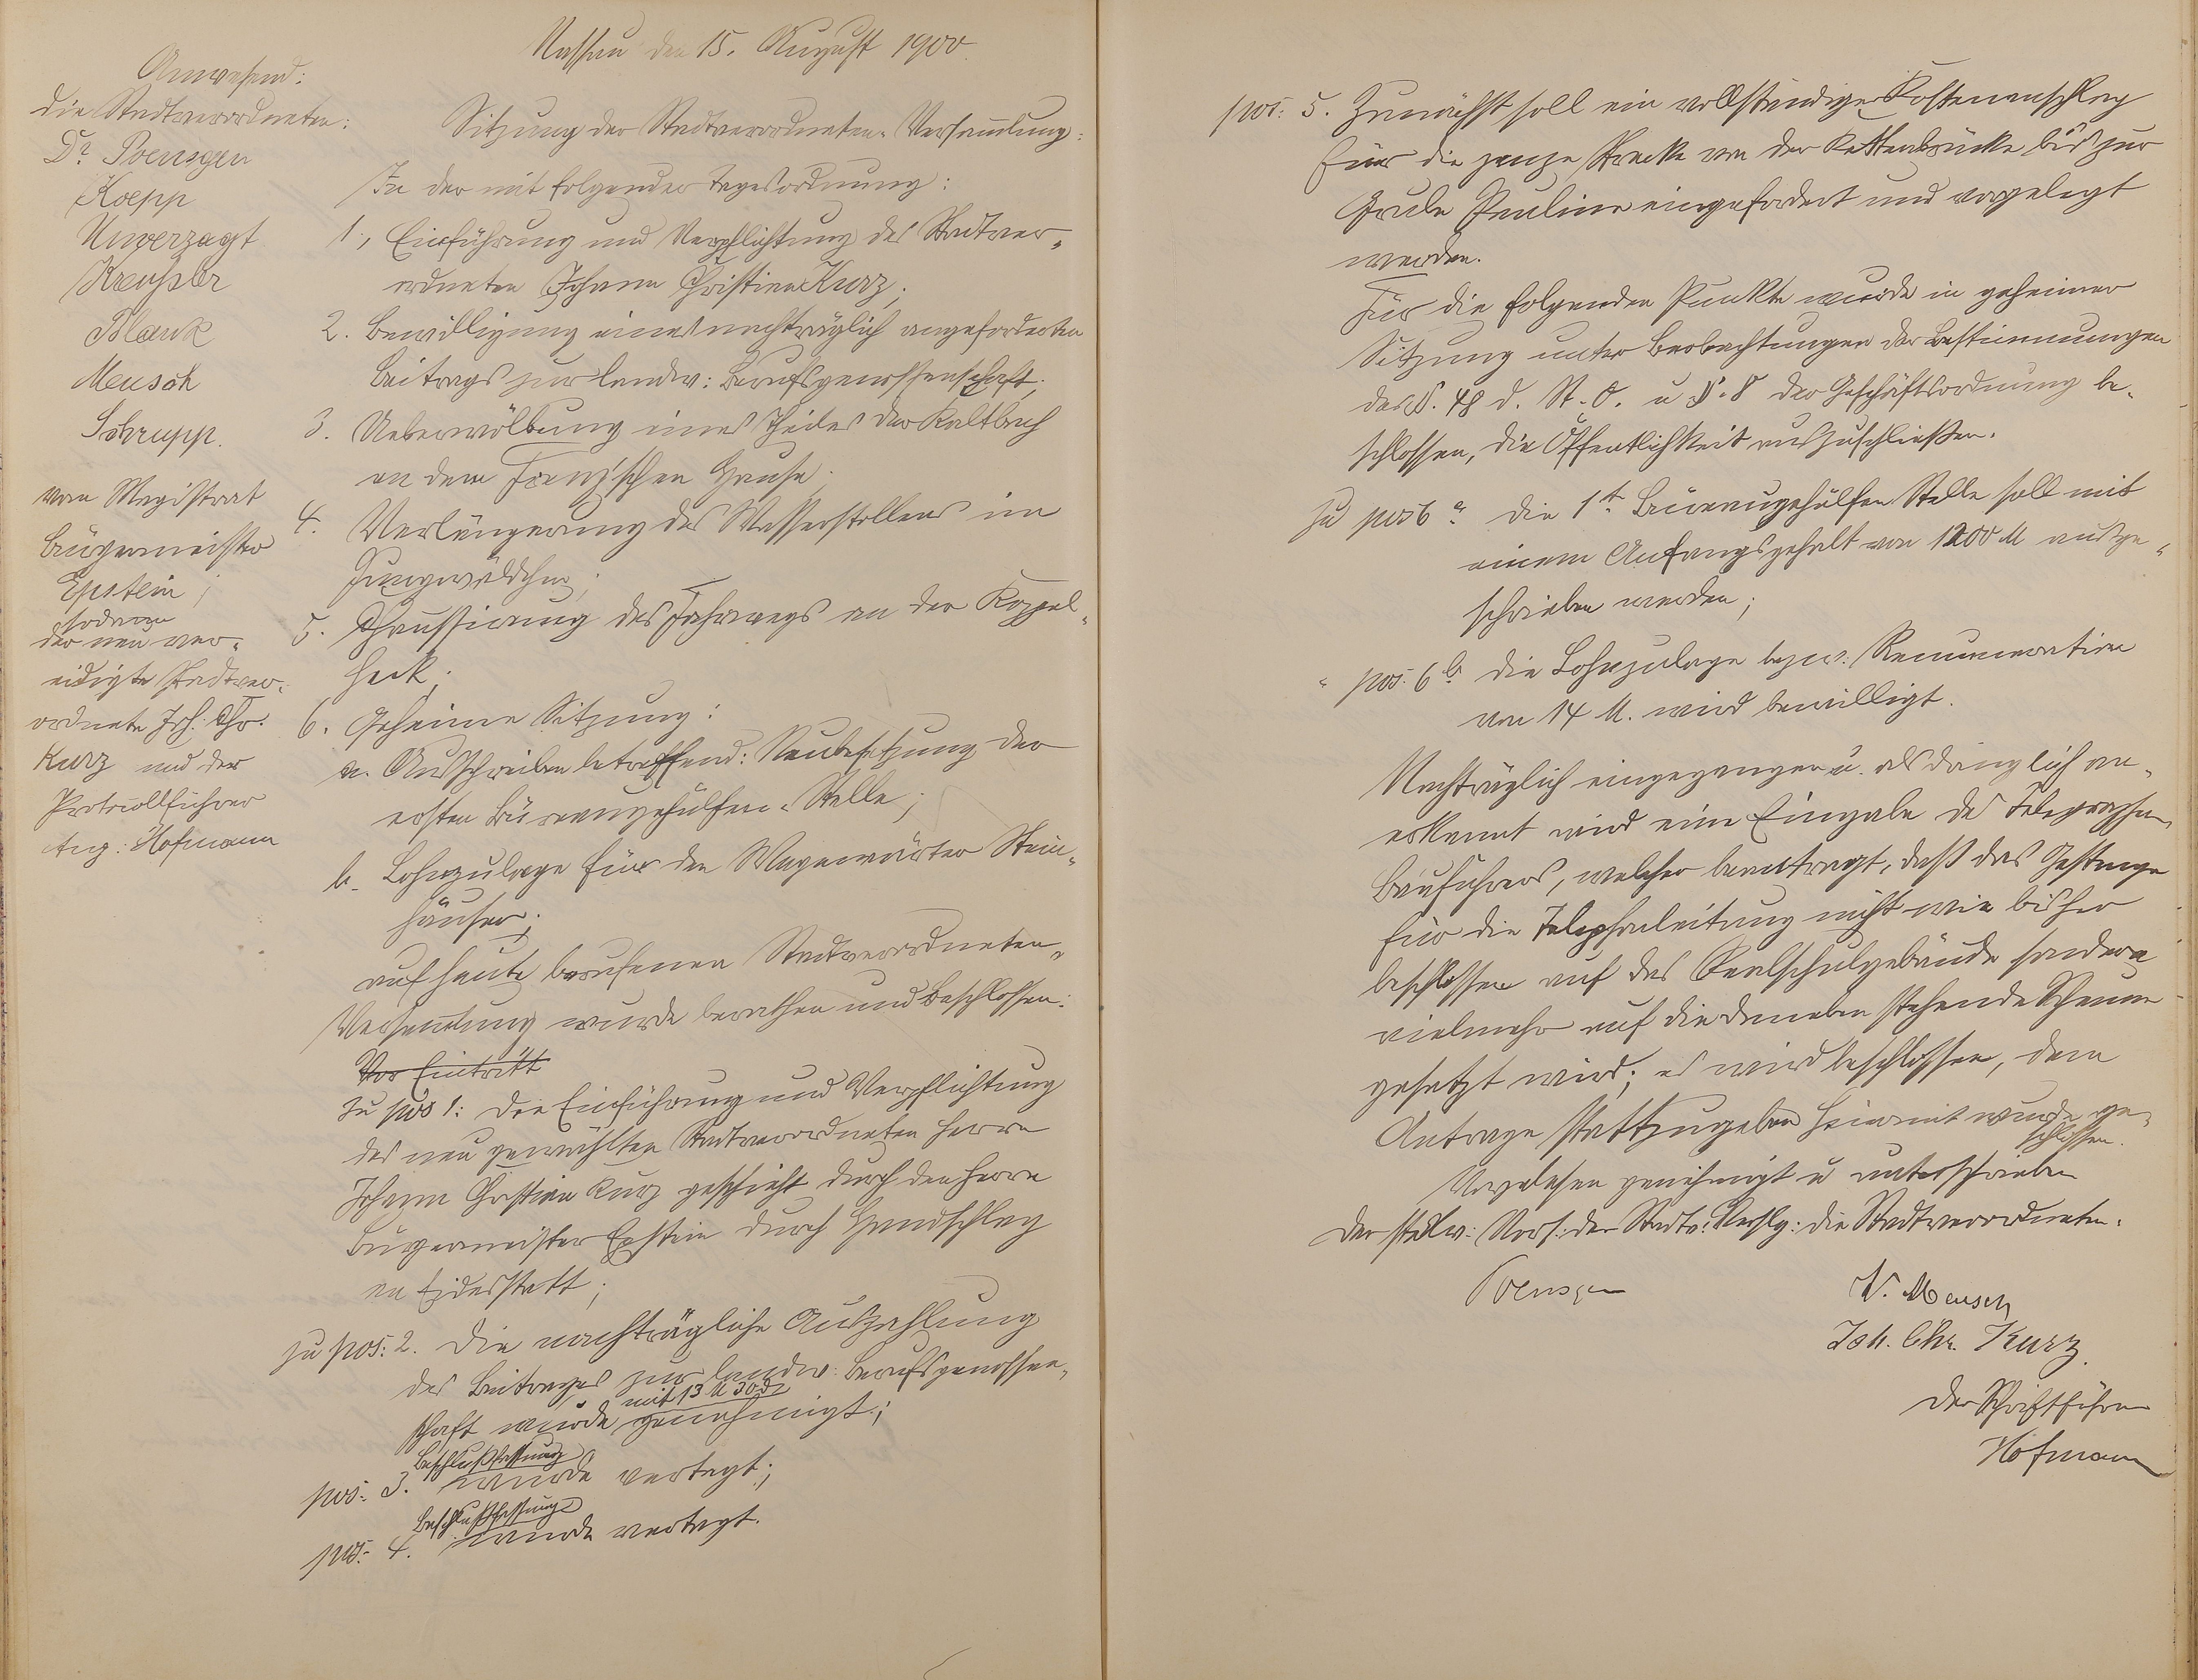 Nassau den 15. August 1900.
Anwesend:
die Stadtverordneten:
Dr. Poensgen
Koepp
Unverzagt
Kreusler
Blank
Meusch
Schrupp.
vom Magistrat
Bürgermeister
Epstein;
sodann
der neu ver-
eidigte Stadtver-
ordnete Joh: Chr.
Kurz und der
Protocollführer
Aug: Hofmann
Sitzung der Stadtverordneten-Versam̅lung:
In der mit folgender Tagesordnung:
1., Einführung und Verpflichtung des Stadtver-
ordneten Johann Christian Kurz;
2. Bewilligung eines nachträglich angeforderten
Beitrags zur landw: Berufsgenossenschaft;
3. Ueberwölbung eines Theiles der Kaltbach
an dem Franz'schen Hause;
4. Verlängerung des Wasserstollens im
Jungwäldchen;
5. Chaussirung des Fahrwegs an der Koppel-
heck;
6. Geheime Sitzung:
a. Ausschreiben betreffend: Neubesetzung der
ersten Büreaugehülfen-Stelle;
b. Lohnzulage für den Wegewärter Stein-
häuser;
auf heute berufenen Stadtverordneten-
Versam̅lung wurde berathen und beschlossen:
Vor Eintritt
Zu pos 1: Die Einführung und Verpflichtung
des neu gewählten Stadtverordneten Herrn
Johann Christian Kurz geschieht durch den Herrn
Bürgermeister Epstein durch Handschlag
an Eidesstatt;
zu pos: 2. Die nachträgliche Auszahlung
des Beitrages zur landw: Berufsgenossen-
mit 13 M 30 d
schaft wurde genehmigt;
Beschlußfassung
pos: 3. wurde vertagt;
Beschlußfassung
pos: 4. wurde vertagt.
pos: 5. Zunächst soll ein vollständiger Kostenanschlag
für die ganze Strecke von der Kettenbrücke bis zur
Grube Pauline eingefordert und vorgelegt
werden.
Für die folgenden Punkte wurde in geheimer
Sitzung unter Beobachtungen der Bestimmungen
des §. 48 d. St. O. u §. 8 der Geschäftsordnung be-
schlossen, die Öffentlichkeit auszuschließen.
zu pos 6 a die 1te Büreaugehülfen Stelle soll mit
einem Anfangsgehalt von 1200 M ausge-
schrieben werden;
" pos. 6 b. die Lohnzulage bezw. Renumeration
von 14 M. wird bewilligt.
Nachträglich eingegangen u. als dringlich an-
erkannt wird eine Eingabe des Telegraphen-
bauführers, welcher beantragt, daß das Gestänge
für die Telephonleitung nicht wie bisher
beschlossen auf das Realschulgebäude sondern
vielmehr auf die daneben stehende Scheune
gesetzt wird; es wird beschlossen, dem
Antrage stattzugeben hiermit wurde ge-
schlossen.
Vorgelesen genehmigt u unterschrieben
Der stellv: Vors: der Stadtv: Verslg: die Stadtverordneten.
Poensgen
W. Meusch
Joh. Chr. Kurz.
Der Schriftführer
Hofmann